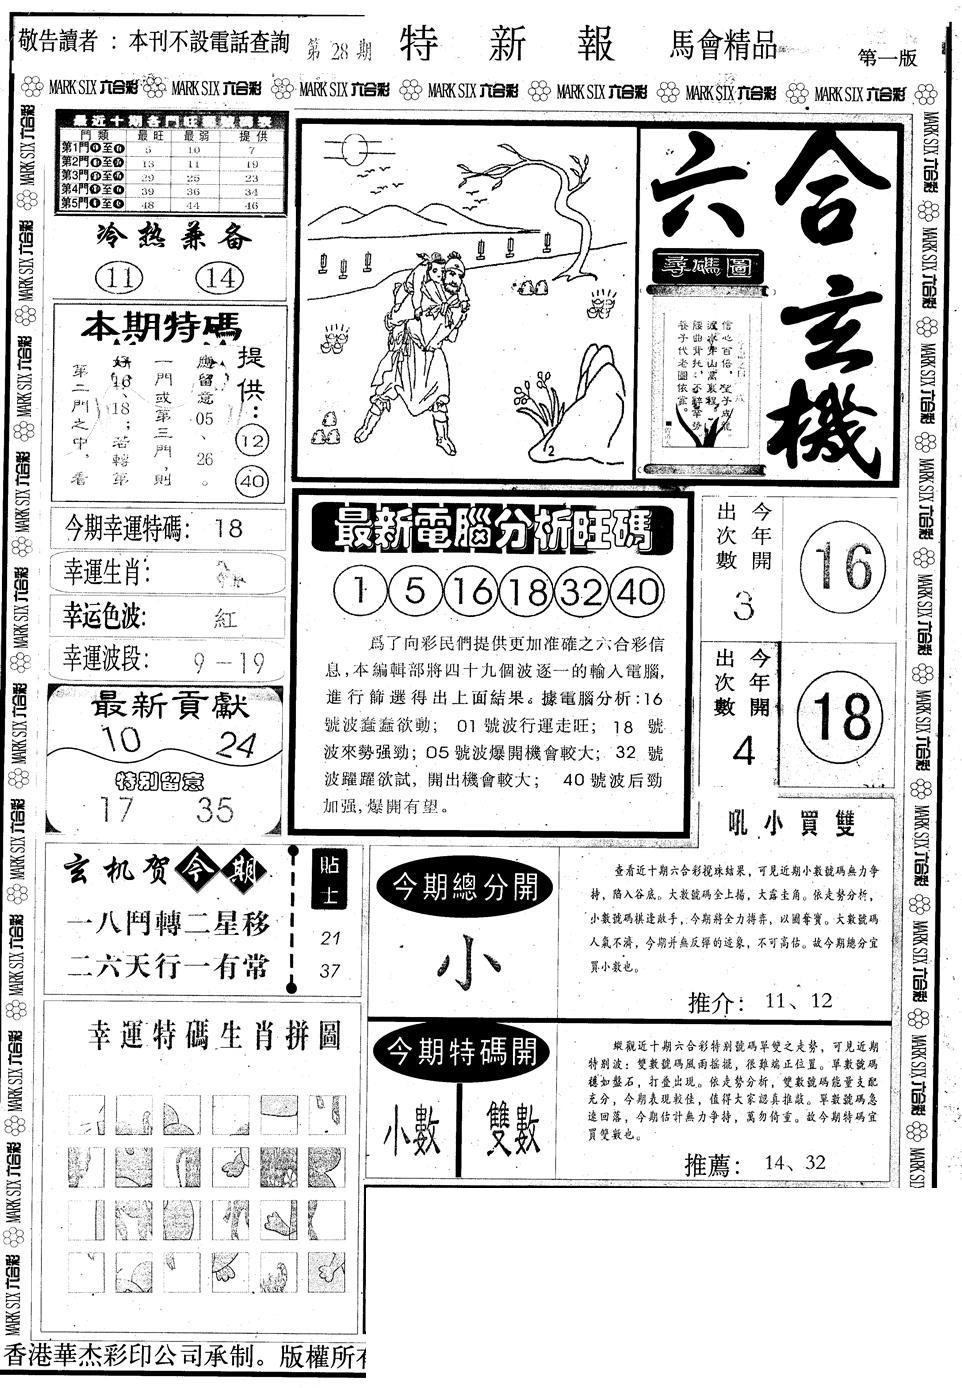 敬告讀者：本刊不設電話查詢
第28期
特新報
馬會精品
第一版
MARK SIX 六合彩 MARK SIX 六合彩 MARK SIX 六合彩 MARK SIX 六合彩 MARK SIX 六合彩 MARK SIX 六合彩 MARK SIX 六合彩
門類 最旺 最弱 提供
第1門 5 10 7
第2門 13 11 19
第3門 29 25 23
第4門 39 36 34
第5門 48 44 46
冷热兼备
11 14
本期特碼
提供：
12
40
應留意05、26。
一門或第三門，則
好16、18；若轉第
第二門之中，看
今期幸運特碼： 18
幸運生肖：
幸运色波： 紅
幸運波段： 9－19
最新貢獻
10 24
特别留意
17 35
六合玄機
尋碼圖
養子代老圖依靠。
最新電腦分析旺碼
1 5 16 18 32 40
爲了向彩民們提供更加准確之六合彩信
息，本編輯部將四十九個波逐一的輸入電腦，
進行篩選得出上面結果。據電腦分析：16
號波蠢蠢欲動； 01號波行運走旺； 18 號
波來勢强勁；05號波爆開機會較大； 32 號
波躍躍欲試，開出機會較大； 40號波后勁
加强，爆開有望。
今年開
出次數
3
16
今年開
出次數
4
18
吼小買雙
玄机贺今期
一八鬥轉二星移
二六天行一有常
貼士
21
37
今期總分開
小
查看近十期六合彩攪珠結果，可見近期小數號碼無力争
持，陷入谷底。大数號碼全上揚，大露圭角。依走勢分析，
小數號碼棋逢敵手，今期將全力搏弈，以圖奪寳。大數號碼
人氣不濟，今期并無反彈的迹象，不可高估。故今期總分宜
買小數也。
推介：11、12
今期特碼開
小數 雙數
縱觀近十期六合彩特别號碼單雙之走勢，可見近期
特别波：雙數號碼風雨摇摇，很難端正位置。單數號碼
穩如盤石，打叠出現。依走勢分析，雙數號碼能量支配
充分，今期表現較佳，值得大家認真推敲。單數號碼急
速回落，今期估計無力争持，萬勿倚重。故今期特碼宜
買雙數也。
推薦：14、32
幸運特碼生肖拼圖
香港華杰彩印公司承制。版權所有